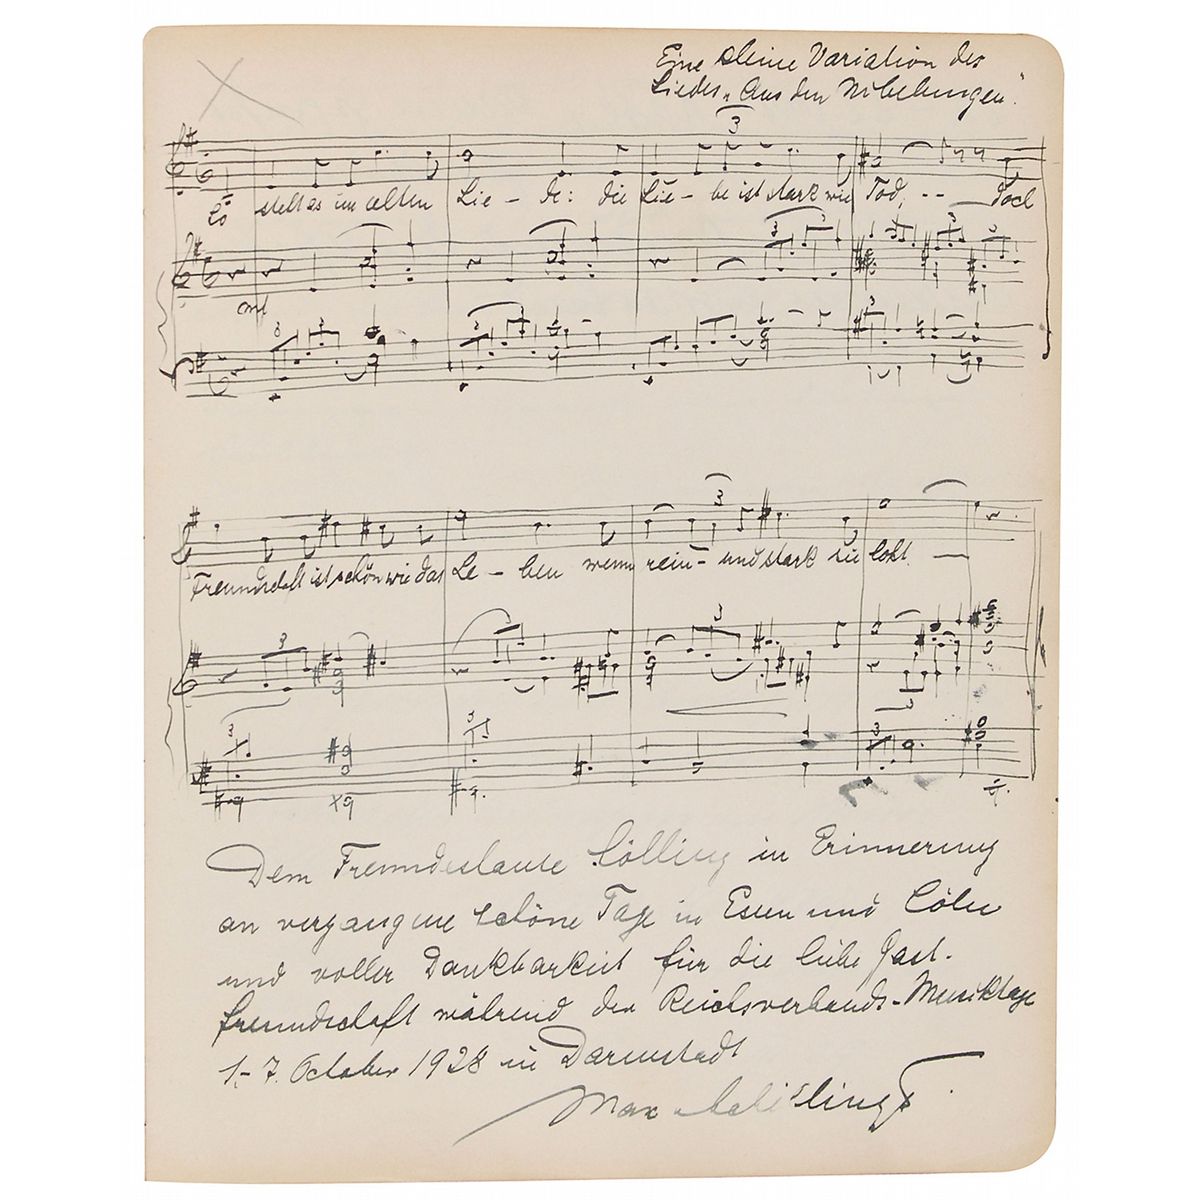 Eine kleine Variation des
Liedes „Aus den Nibelungen".
Es steht es im alten Lie - de: die Lie - be ist stark wie Tod, -- Doch
Freundschaft ist schön wie das Le - ben wenn rein - und stark sie loht
Dem Freundeslaute Cölling in Erinnerung
an vergangene schöne Tage in Essen und Cöln
und voller Dankbarkeit für die liebe Gast-
freundschaft während der Reichsverbands-Musiktage
1.-7. October 1928 in Darmstadt
Max Schillings